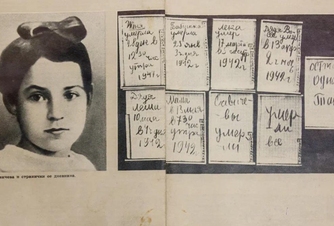 Женя
умерла
28 дек в
12 30
час
утра
1941 г
Бабушка
умерла
25 янв
3 ч дня
1942 г
Лека
умер
17 марта
в 5 час
1942 г
Дядя Ва
умер
в 13 апр
2 ч ноч
1942 г
Дядя
Леша
10 мая
в 4 ч дня
1942
Мама
в 13 мая
в 7 30
час
утра
1942
Савиче-
вы
умер
ли
Умер
ли
все
Оста
одн
Та